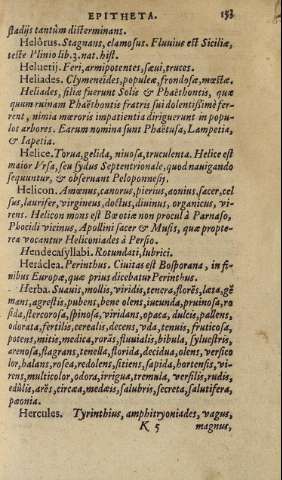 EPITHETA. 153
stadijs tantùm disterminans.
Helôrus. Stagnans, clamosus. Fluuius est Siciliæ,
teste Plinio lib.3.nat.hist.
Heluetij. Feri, armipotentes, sæui, truces.
Heliades. Clymeneides, populeæ, frondosæ, mœstæ.
Heliades, filiæ fuerunt Solis & Phaëthontis, quæ
quum ruinam Phaëthontis fratris sui dolentissimè fer-
rent, nimia mæroris impatientia diriguerunt in popu-
los arbores. Earum nomina sunt Phaëtusa, Lampetia,
& Iapetia.
Helice. Torua, gelida, niuosa, truculenta. Helice est
maior Vrsa, seu sydus Septentrionale, quod nauigando
sequuntur, & obseruant Peloponnesij.
Helicon. Amœnus, canorus, pierius, aonius, sacer, cel
sus, laurifer, virgineus, doctus, diuinus, organicus, vi-
rens. Helicon mons est Bœotiæ non procul à Parnaso,
Phocidi vicinus, Apollini sacer & Musis, quæ propte-
rea vocantur Heliconiades à Persio.
Hendecasyllabi. Rotundati, lubrici.
Heráclea. Perinthus. Ciuitas est Bosporana, in fi-
nibus Europæ, quæ prius dicebatur Perinthus.
Herba. Suauis, mollis, viridis, tenera, florēs, læta, gē
mans, agrestis, pubens, bene olens, iucunda, pruinosa, ro
sida, stercorosa, spinosa, viridans, opaca, dulcis, pallens,
odorata, fertilis, cerealis, decens, vda, tenuis, fruticosa,
potens, mitis, medica, rorās, fluuialis, bibula, syluestris,
arenosa, flagrans, tenella, florida, decidua, olens, versico
lor, halans, rosea, redolens, sitiens, sapida, hortensis, vi-
rens, multicolor, odora, irrigua, tremula, versilis, rudis,
edûlis, arēs, circæa, medæis, salubris, secreta, salutifera,
pæonia.
Hercules. Tyrinthius, amphitryoniades, vagus,
K 5 magnus,